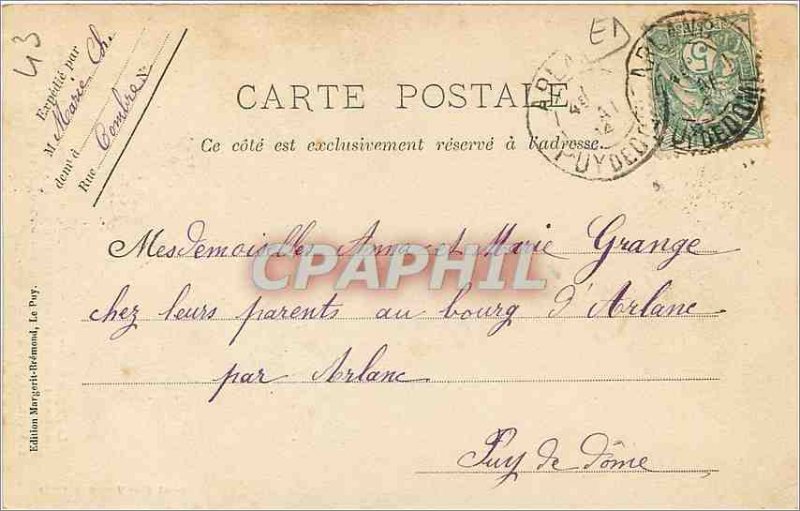 43
Expédié par
M Marie Ch.
dem t à Combre
Rue N°
EN
CARTE POSTALE
Ce côté est exclusivement réservé à l'adresse.
ARLANC
PUY DE DOME
5
ARLANC
PUY DE DOME
Mesdemoiselles Anna et Marie Grange
CPAPHIL
chez leurs parents au bourg d'Arlanc
par Arlanc
Puy de dôme
Edition Margerit-Brémond, Le Puy.